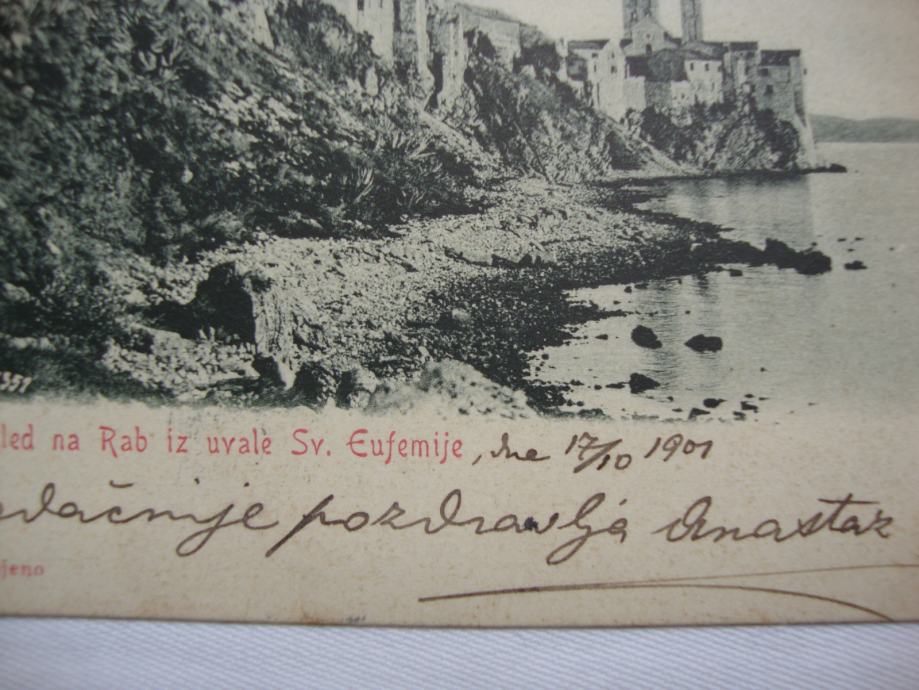 led na Rab iz uvale Sv. Eufemije, dne 17/10 1901
pozdravlja Anastaz
jeno